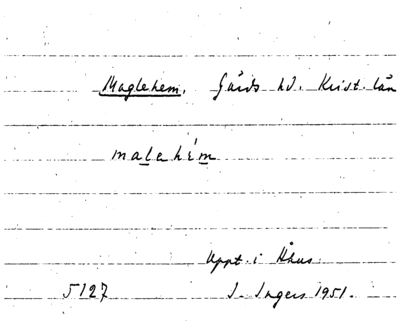 Maglehem. Gärds hd. Krist. län
malehém
Uppt. i Åhus
5127 I. Ingers 1951.